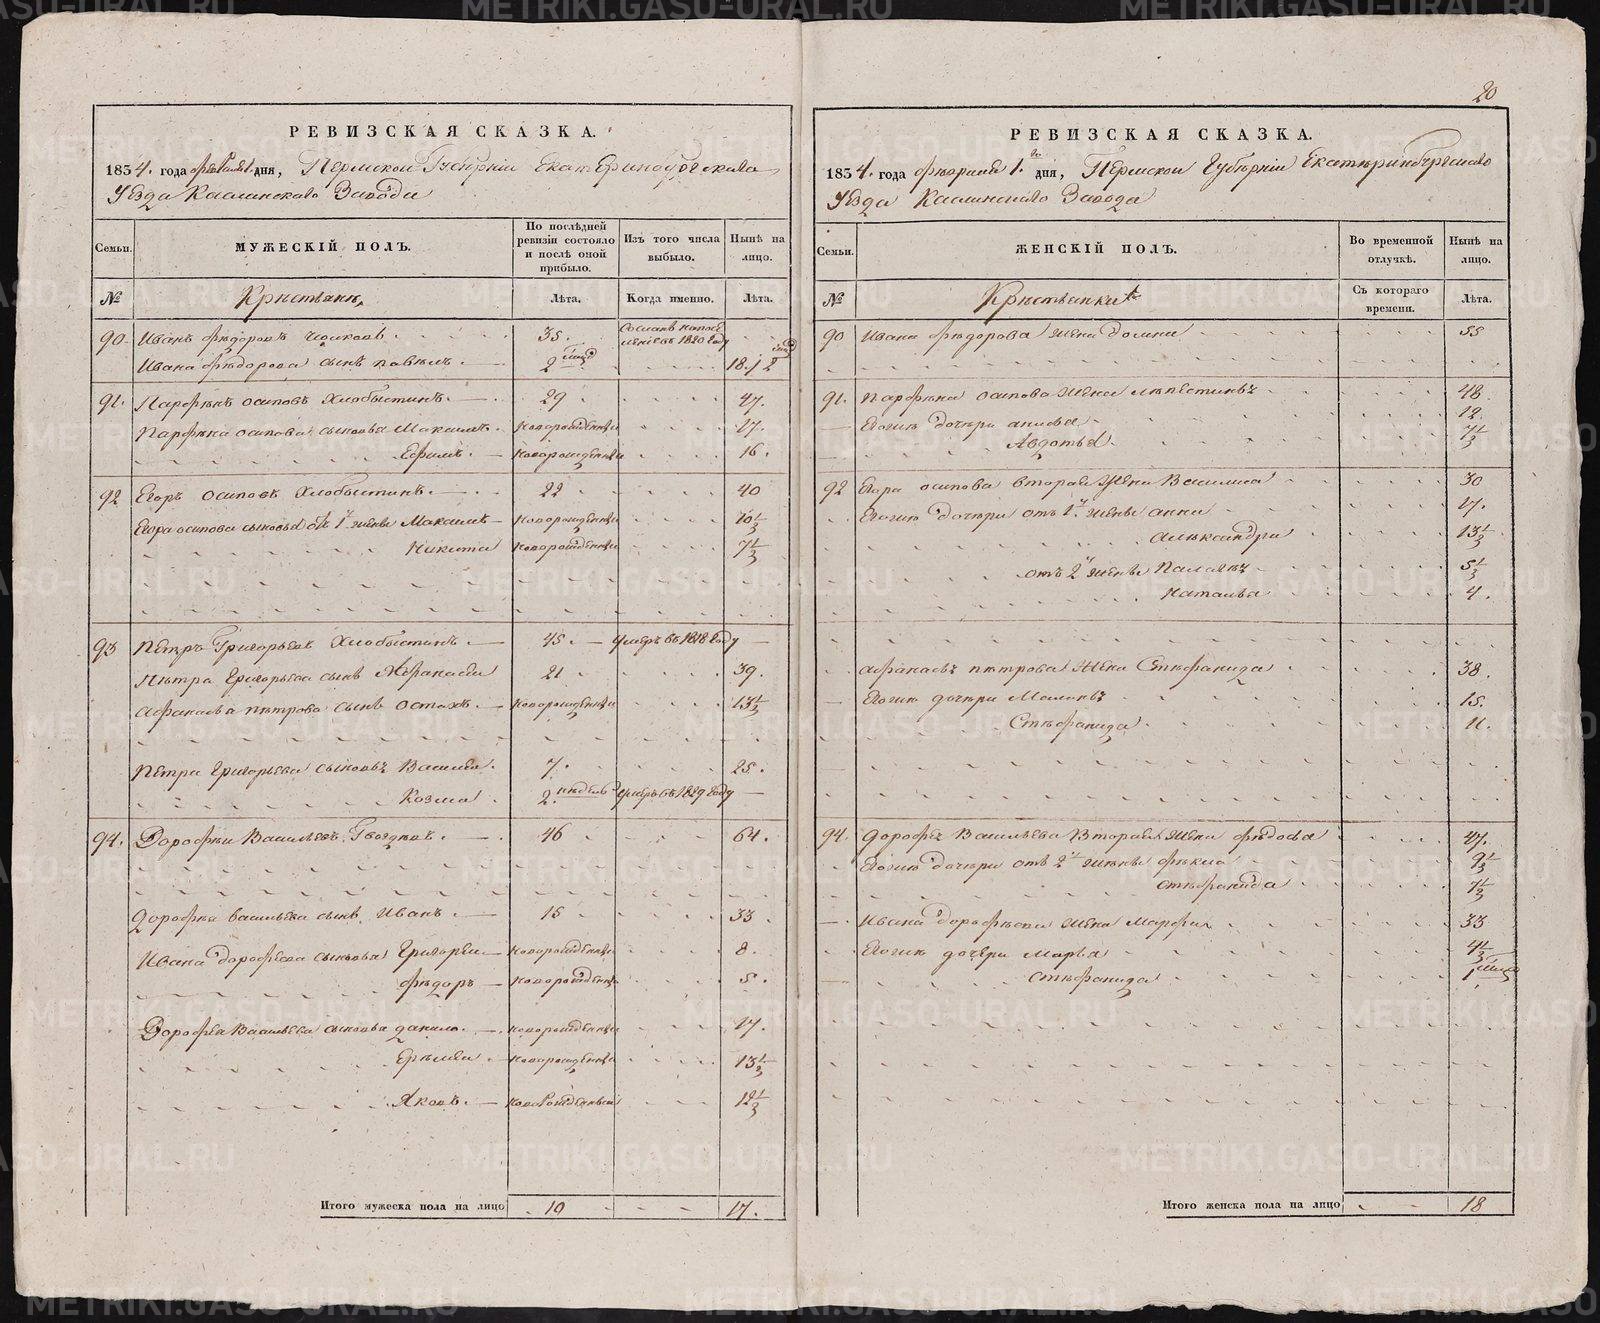 20
РЕВИЗСКАЯ СКАЗКА.
1834. года февраля 1. дня, Пермской Губернии Екатеринбургскаго
Уезда Каслинскаго Завода
Семьи.
МУЖЕСКІЙ ПОЛЪ.
По послѣдней ревизіи состояло и послѣ оной прибыло.
Изъ того числа выбыло.
Нынѣ на лицо.
№
Крестьяне
Лѣта.
Когда именно.
Лѣта.
90. Иванъ Федоровъ 35. Сосланъ на поселение въ 1820 году
Ивана Федорова сынъ Павелъ. 2 мѣсяц 18. / 2 мѣсяц
91. Парфенъ осиповъ Хлобыстинъ. 29 47.
Парфена осипова сыновья Максимъ. новорожденный 17.
Ефимъ. новорожденный 16.
92 Егоръ осиповъ Хлобыстинъ. 22 40
Егора осипова сыновья отъ 1й жены Максимъ новорожденный 10½
Никита новорожденный 7½
93 Петръ Григорьевъ Хлобыстинъ. 45. умеръ въ 1818 году
Петра Григорьева сынъ Афанасий 21 39.
Афанасья петрова сынъ остапъ. новорожденный 13½
Петра Григорьева сыновья Василий. 7. 25.
Козма. 2 недель умеръ въ 1829 году
94. Дорофей Васильевъ Гвоздевъ. 46 64.
Дорофея васильева сынъ Иванъ. 15 33.
Ивана дорофеева сыновья Григорей новорожденный 8.
федоръ новорожденный 5.
Дорофея Васильева сыновья данило. новорожденный 17.
Еремей новорожденный 13½
Яковъ. новорожденный 12½
Итого мужеска пола на лицо 10 17.
РЕВИЗСКАЯ СКАЗКА.
1834. года февраля 1. го дня, Пермской Губернии Екатеринбургскаго
Уезда Каслинскаго Завода
Семьи.
ЖЕНСКІЙ ПОЛЪ.
Во временной отлучкѣ.
Нынѣ на лицо.
№
Крестьянки
Съ котораго времени.
Лѣта.
90 Ивана федорова жена домна 55
91. Парфена осипова жена 48.
Егоже дочери анисья 12.
Авдотья. 7½
92 Егора осипова вторая жена Василиса 30
Егоже дочери отъ 1й жены анна 17.
александра 13½
отъ 2й жены Палагея 5½
Наталья 4.
Афанасья петрова жена Стефанида 38.
Егоже дочери Маланья 15.
Стефанида 11.
94. дорофея Васильева Вторая жена федосья 47.
Егоже дочери отъ 2й жены фекла 9½
стефанида 7½
Ивана дорофеева жена Марфа 33
Егоже дочери марья 4½
стефанида 1 мѣсяц
Итого женска пола на лицо 18
METRIKI.GASO-URAL.RU